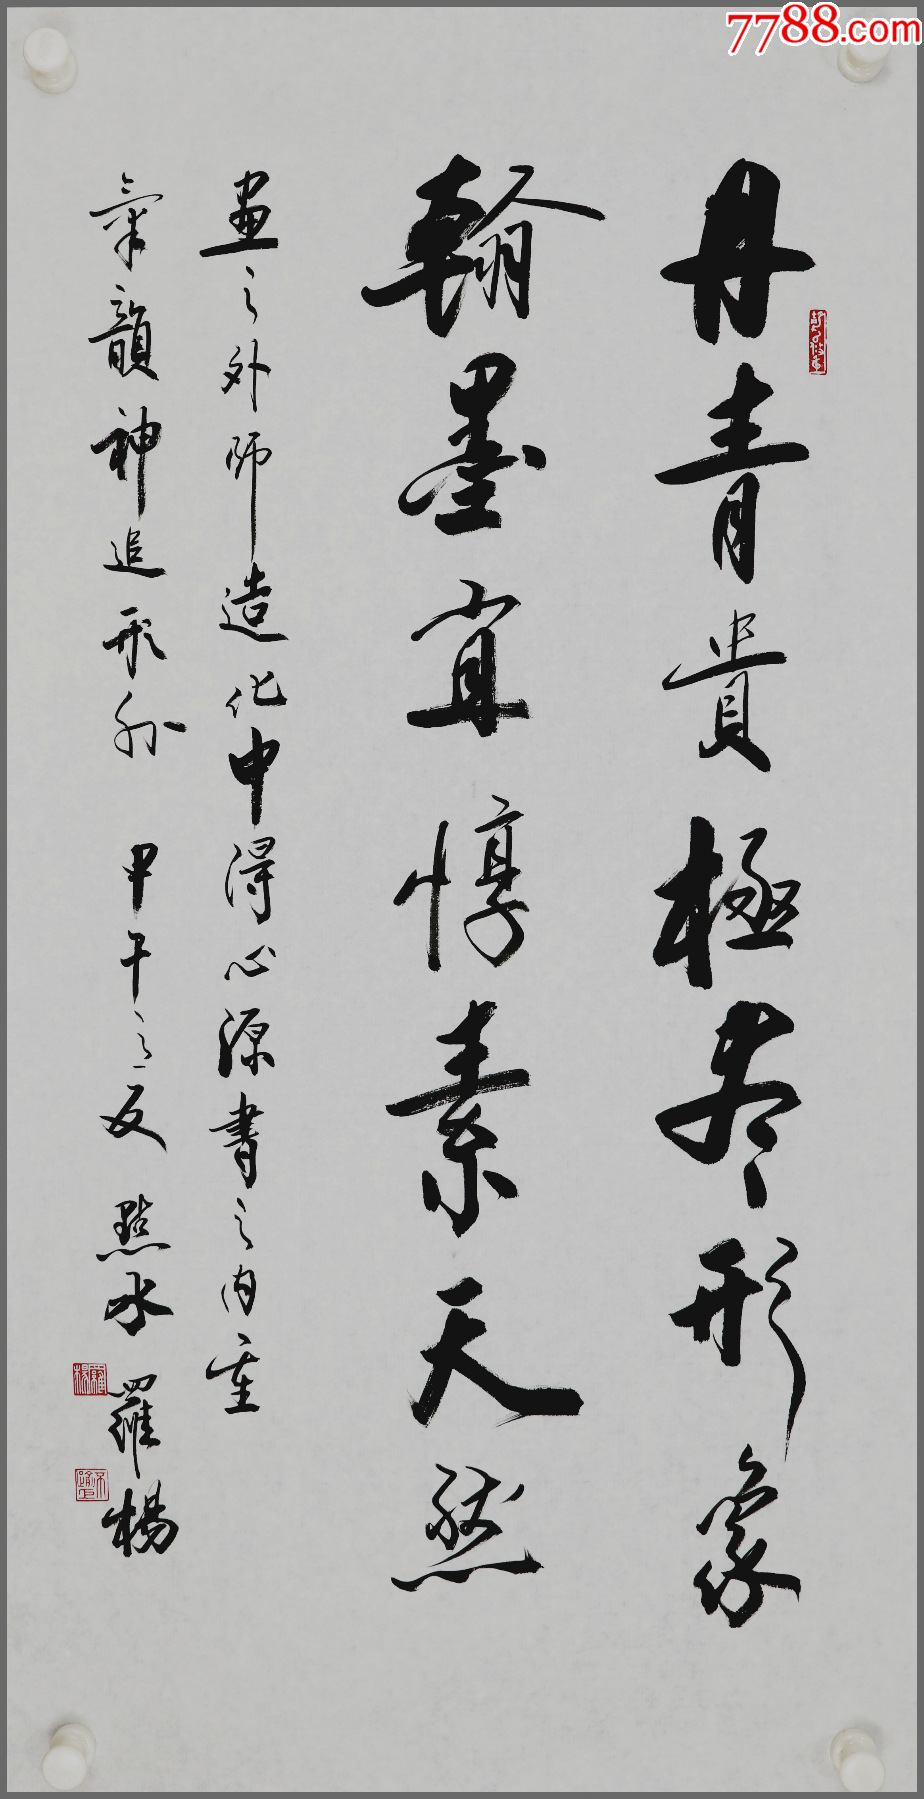 7788.com
丹青貴極盡形象
翰墨宜惇素天然
畫之外師造化中得心源書之内重
氣韻神追形外 甲午之夏 點冰 羅楊
羅楊